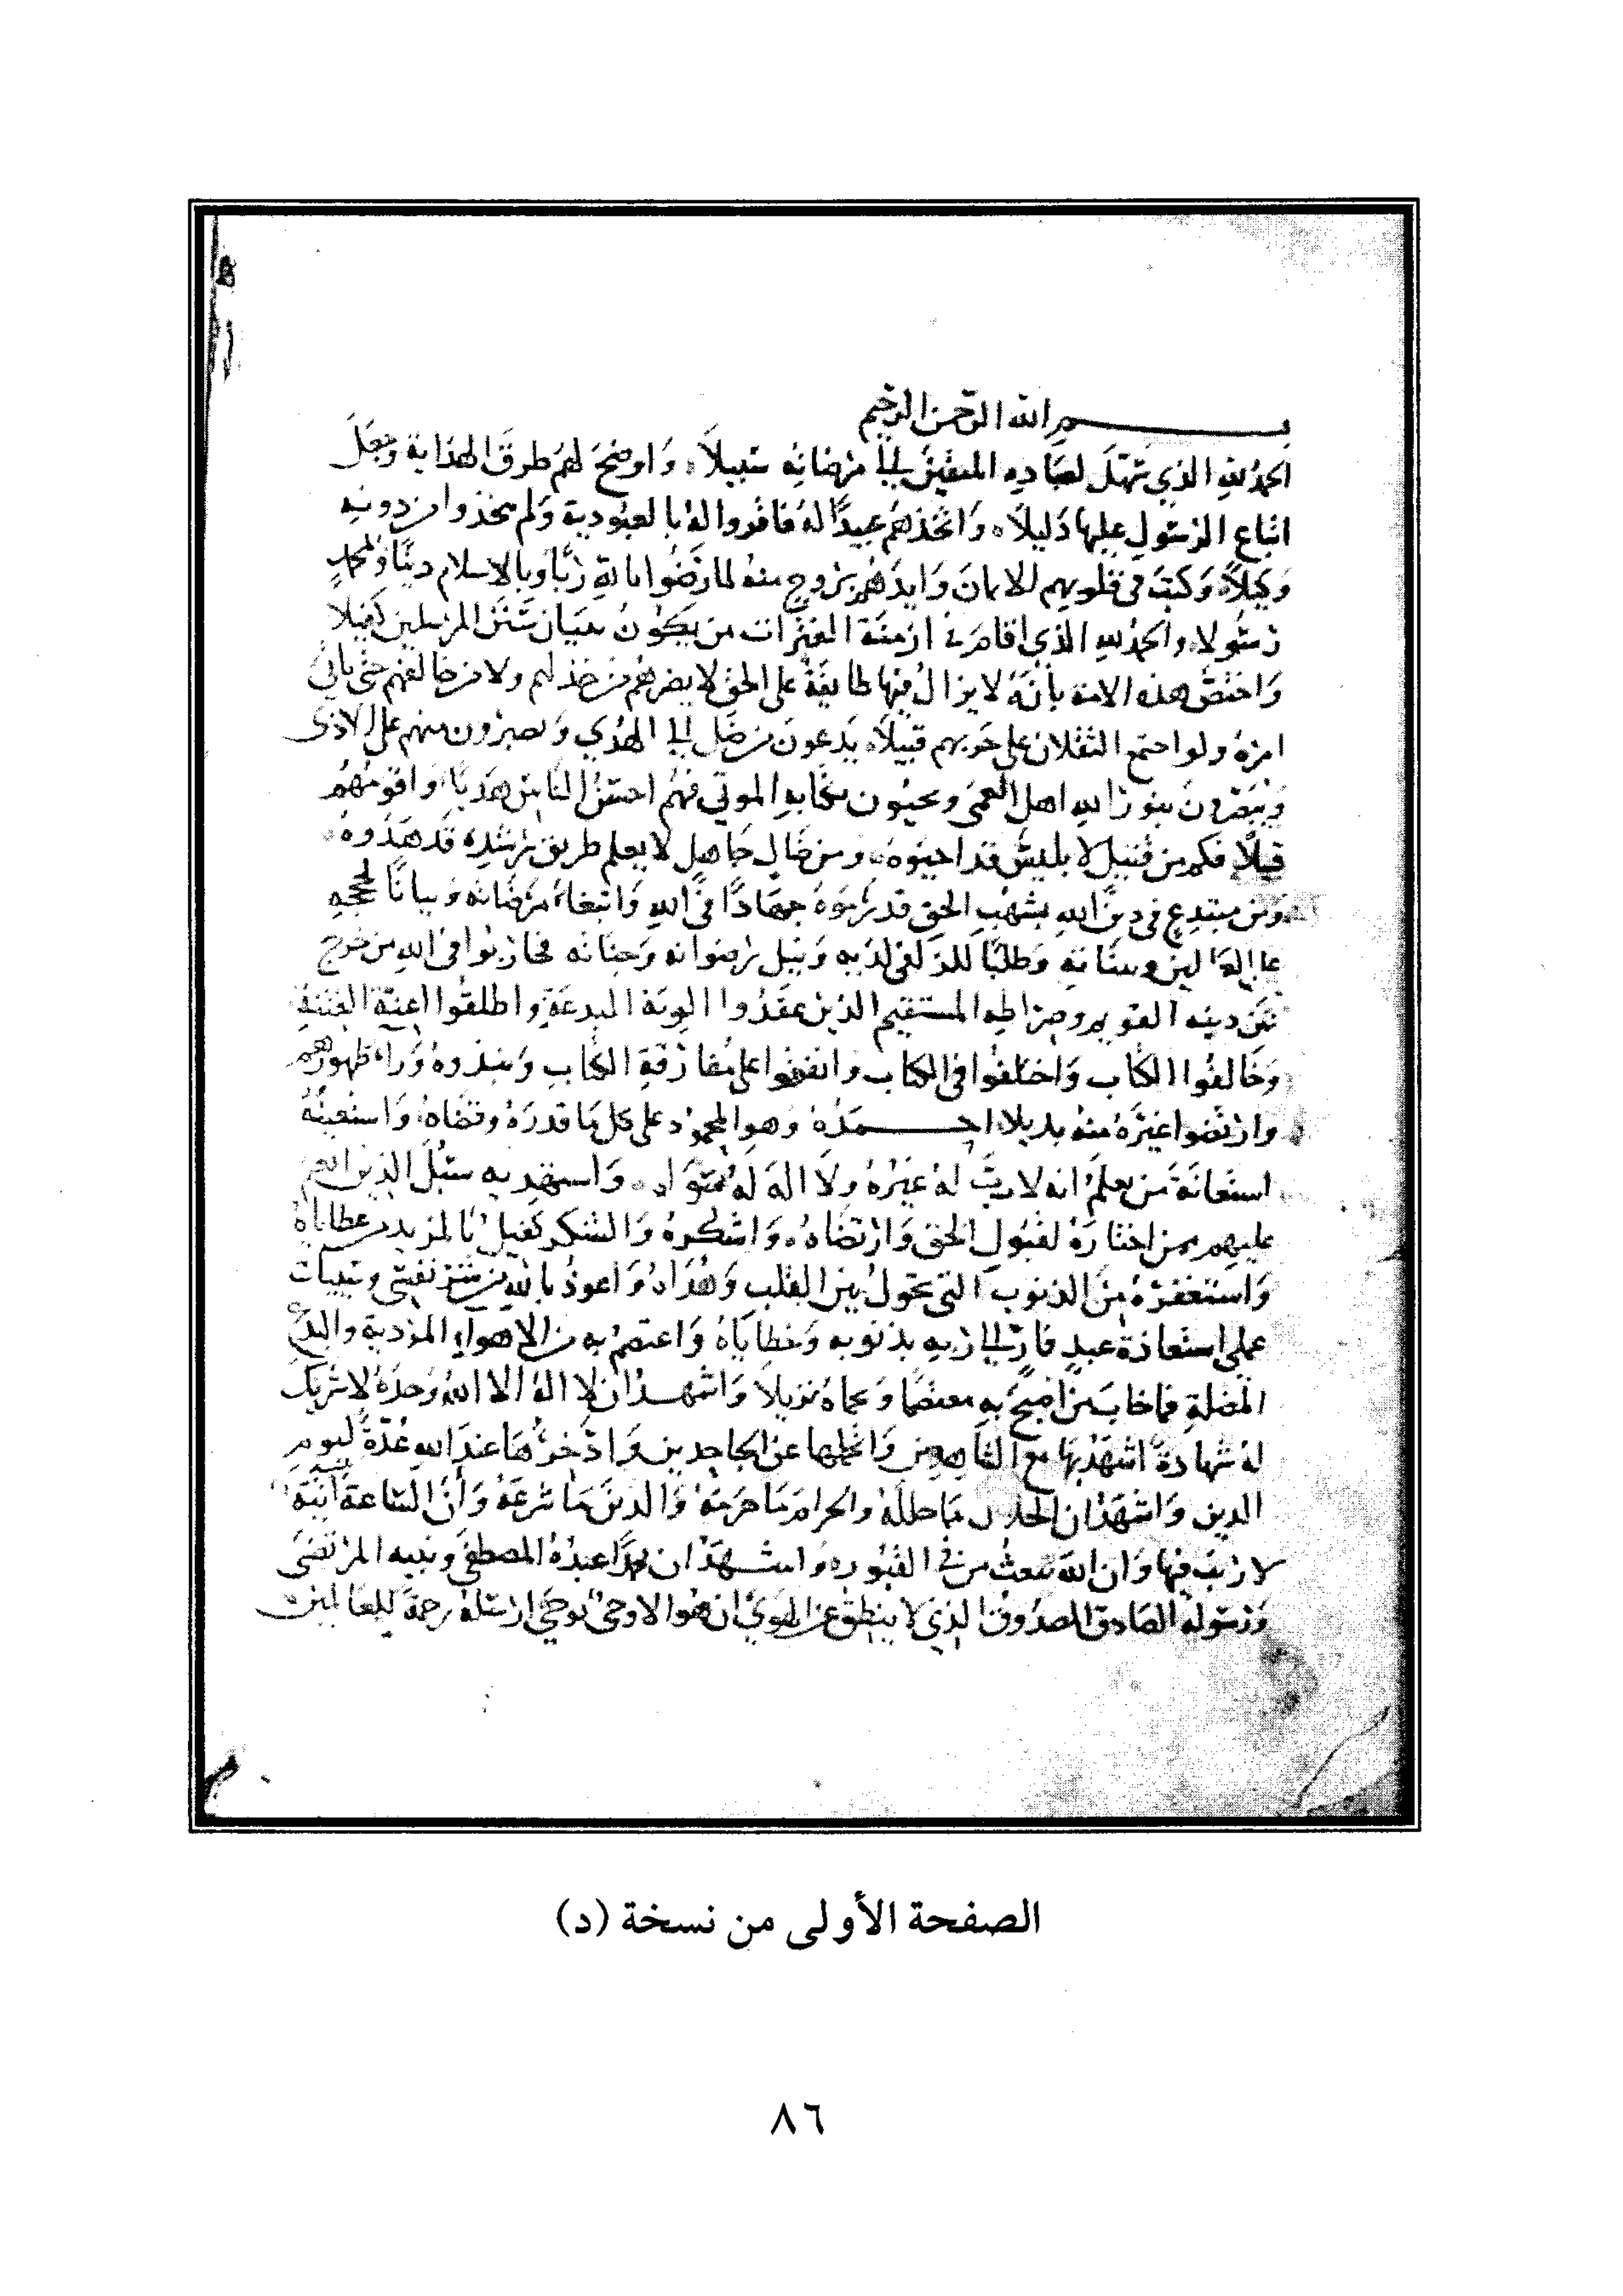 بسم الله الرحمن الرحيم
الحمد لله الذي سهل لعباده المتقين إلى مرضاته سبيلا، وأوضح لهم طرق الهداية وجعل
اتباع الرسول عليها دليلا، واتخذهم عبيدا له فأقروا له بالعبودية ولم يتخذوا من دونه
وكيلا، وكتب في قلوبهم الايمان وأيدهم بروح منه لما رضوا بالله ربا وبالاسلام دينا وبمحمد
رسولا، والحمد لله الذي أقام في أزمنة الفترات من يكون ببيان سنن المرسلين كفيلا
واختص هذه الامة بأنه لا يزال فيها طايفة على الحق لا يضرهم من خذلهم ولا من خالفهم حتى يأتي
امره ولو اجتمع الثقلان على حربهم قبيلا، يدعون من ضل إلى الهدى ويصبرون منهم على الاذى
ويبصرون بنور الله اهل العمى ويحيون بكتابه الموتى فهم احسن الناس هديا وأقومهم
قيلا، فكم من قتيل لابليس قد احيوه، ومن ضال جاهل لا يعلم طريق رشده قد هدوه،
ومن مبتدع في دين الله بشهب الحق قد رموه جهادا في الله وابتغاء مرضاته وبيانا لحججه
على العالمين وبيناته وطلبا للزلفى لديه ونيل رضوانه وجناته فحاربوا في الله من خرج
عن دينه القويم وصراطه المستقيم الذين عقدوا الوية البدعة واطلقوا اعنة الفتنة
وخالفوا الكتاب واختلفوا في الكتاب واتفقوا على مفارقة الكتاب ونبذوه وراء ظهورهم
وارتضوا غيره منه بديلا، احمده وهو المحمود على كل ما قدره وقضاه، واستعينه
استعانة من يعلم انه لا رب له غيره ولا اله له سواه، واستهديه سبل الذين انعم
عليهم ممن اختاره لقبول الحق وارتضاه، واشكره والشكر كفيل بالمزيد من عطاياه
واستغفره من الذنوب التي تحول بين القلب وهداه واعوذ بالله من شر نفسي وسيئات
عملي استعاذة عبد فار إلى ربه بذنوبه وخطاياه واعتصم به من الاهواء المردية والبدع
المضلة فما خاب من اصبح به معتصما وبحماه نزيلا واشهد ان لا اله الا الله وحده لا شريك
له شهادة اشهد بها مع الشاهدين واتحملها عن الجاحدين وادخرها عند الله عدة ليوم
الدين واشهد ان الحلال ما حلله والحرام ما حرمه والدين ما شرعه وأن الساعة آتية
لا ريب فيها وان الله يبعث من في القبور، واشهد ان محمدا عبده المصطفى ونبيه المرتضى
ورسوله الصادق المصدوق الذي لا ينطق عن الهوى ان هو الا وحي يوحى ارسله رحمة للعالمين
الصفحة الأولى من نسخة (د)
٨٦